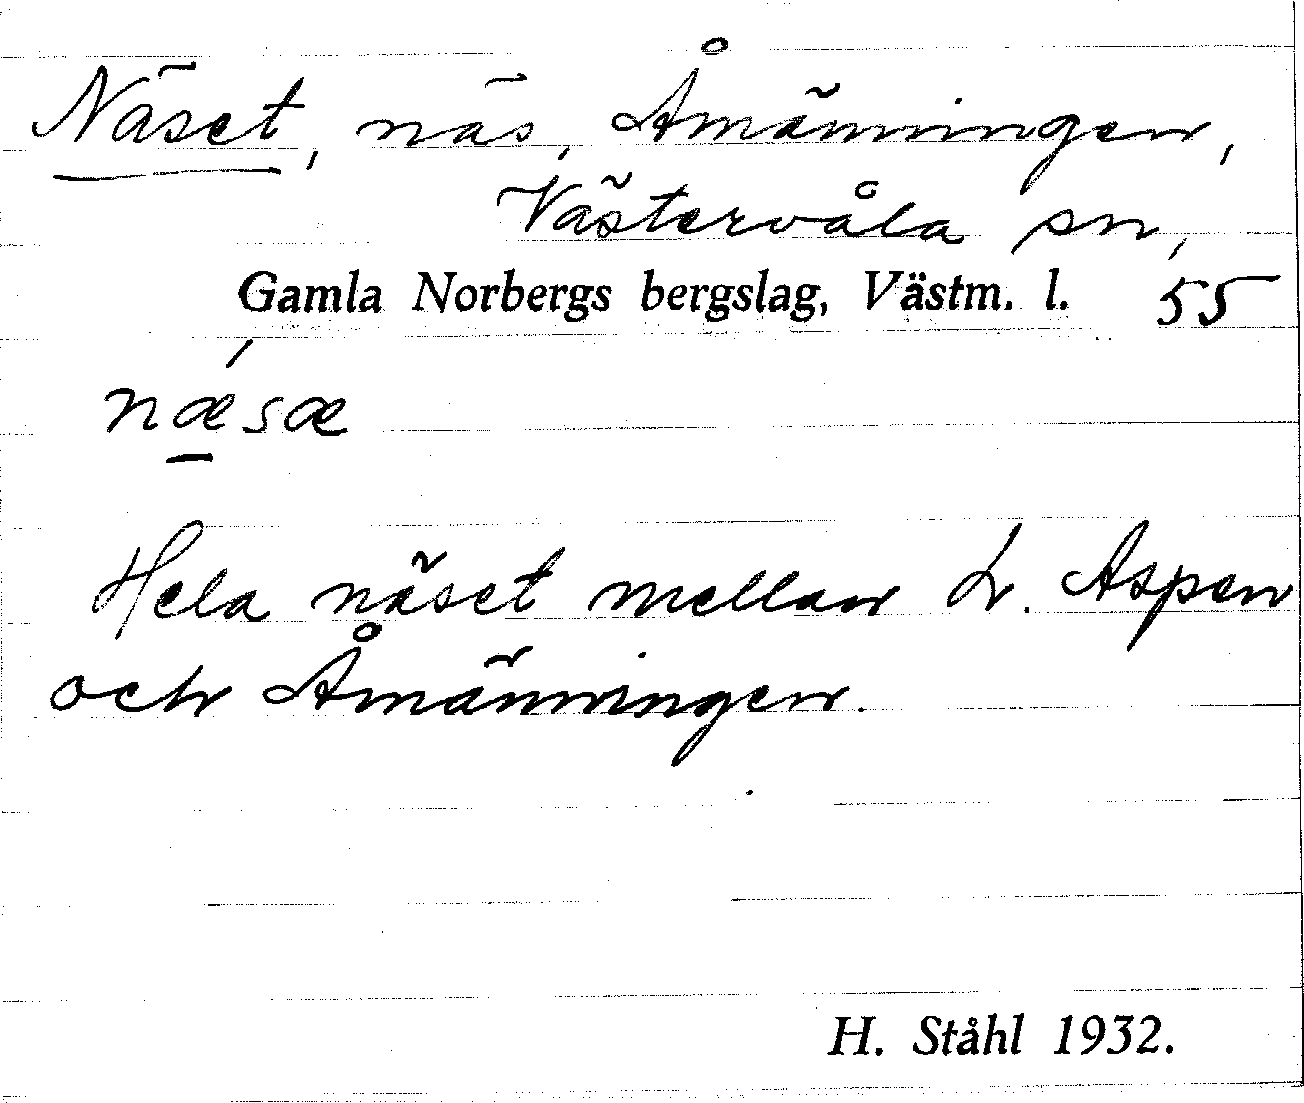 Näset, näs, Åmänningen,
Västervåla sn,
Gamla Norbergs bergslag, Västm. l. 55
nǽ̲sæ
Hela näset mellan L. Aspen
och Åmänningen.
H. Ståhl 1932.